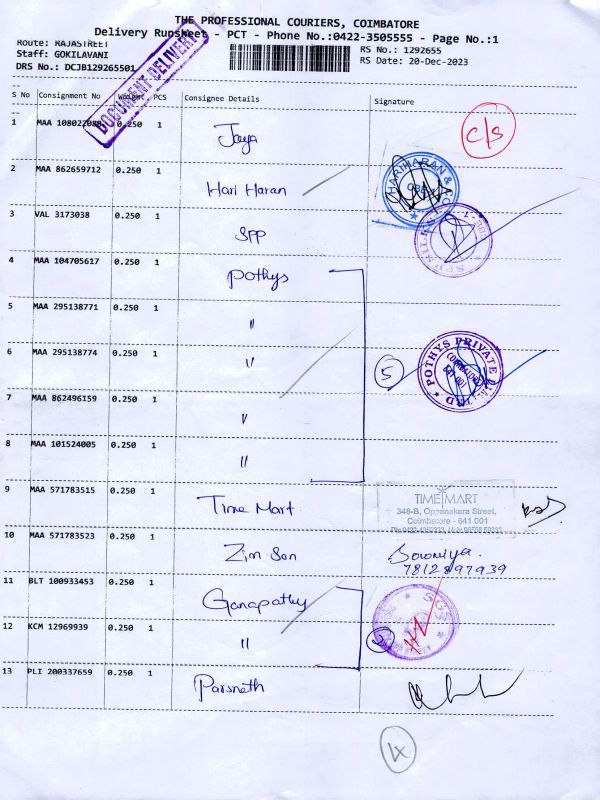 THE PROFESSIONAL COURIERS, COIMBATORE
Delivery Runsheet - PCT - Phone No.:0422-3505555 - Page No.:1
Route: RAJASTREET
RS No.: 1292655
Staff: GOKILAVANI
RS Date: 20-Dec-2023
DRS No.: DCJB129265501
DOCUMENT DELIVERY
S No Consignment No Weight PCS Consignee Details Signature
1 MAA 108022088 0.250 1 Jaya C/S
2 MAA 862659712 0.250 1 Hari Haran HARIHARAN & CO CBE
3 VAL 3173038 0.250 1 SPP
4 MAA 104705617 0.250 1 Pothys
5 MAA 295138771 0.250 1 "
6 MAA 295138774 0.250 1 " 5 POTHYS PRIVATE LTD
7 MAA 862496159 1 "
8 MAA 101524005 0.250 1 "
9 MAA 571783515 0.250 1 Time Mart
TIME MART
348-B, Oppanakara Street,
Coimbatore - 641 001
10 MAA 571783523 0.250 1 Zim Son Sowmiya.
7812897939
11 BLT 100933453 0.250 1 Ganapathy SGS
12 KCM 12969939 0.250 1 "
13 PLI 200337659 0.250 1 Parsneth